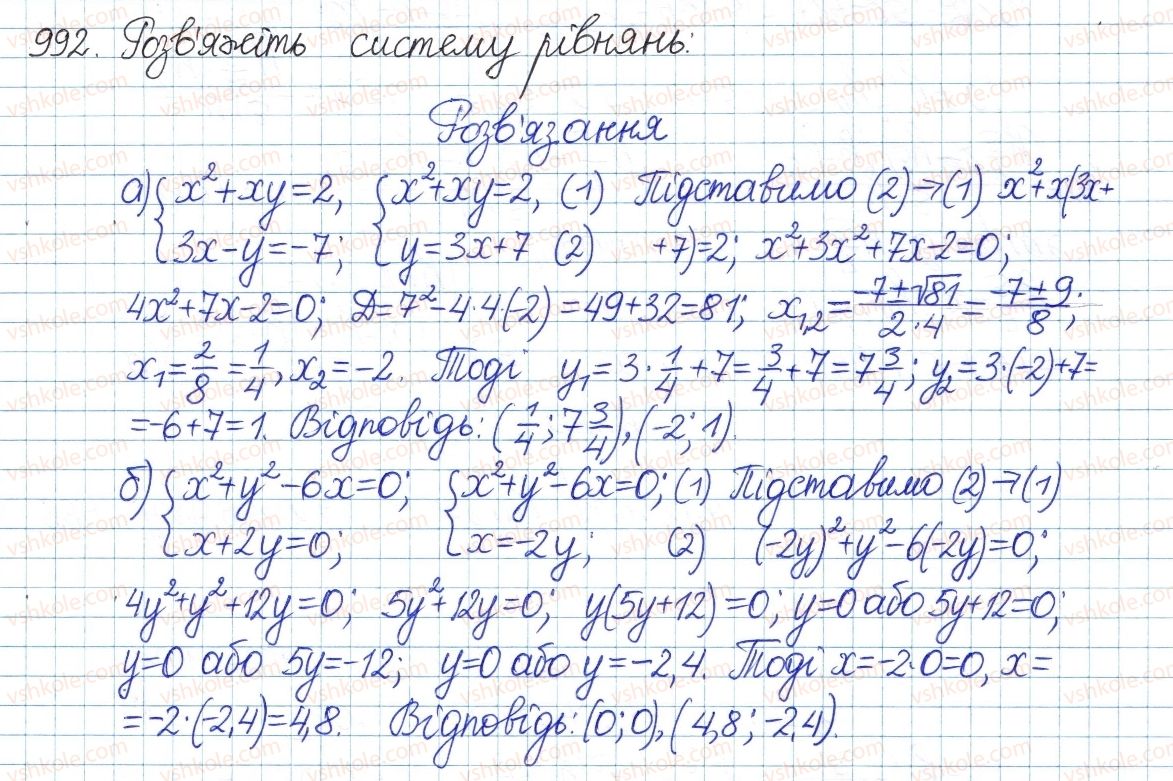 992. Розв'яжіть систему рівнянь:
Розв'язання
а) { x²+xy=2, { x²+xy=2, (1) Підставимо (2)→(1) x²+x(3x+
3x-y=-7; y=3x+7 (2) +7)=2; x²+3x²+7x-2=0;
4x²+7x-2=0; D=7²-4·4·(-2)=49+32=81; x₁,₂=(-7±√81)/(2·4)=(-7±9)/8;
x₁=2/8=1/4, x₂=-2. Тоді y₁=3·1/4+7=3/4+7=7 3/4; y₂=3·(-2)+7=
=-6+7=1. Відповідь: (1/4; 7 3/4), (-2; 1).
б) { x²+y²-6x=0; { x²+y²-6x=0; (1) Підставимо (2)→(1)
x+2y=0; x=-2y; (2) (-2y)²+y²-6(-2y)=0;
4y²+y²+12y=0; 5y²+12y=0; y(5y+12)=0; y=0 або 5y+12=0;
y=0 або 5y=-12; y=0 або y=-2,4. Тоді x=-2·0=0, x=
=-2·(-2,4)=4,8. Відповідь: (0; 0), (4,8; -2,4).